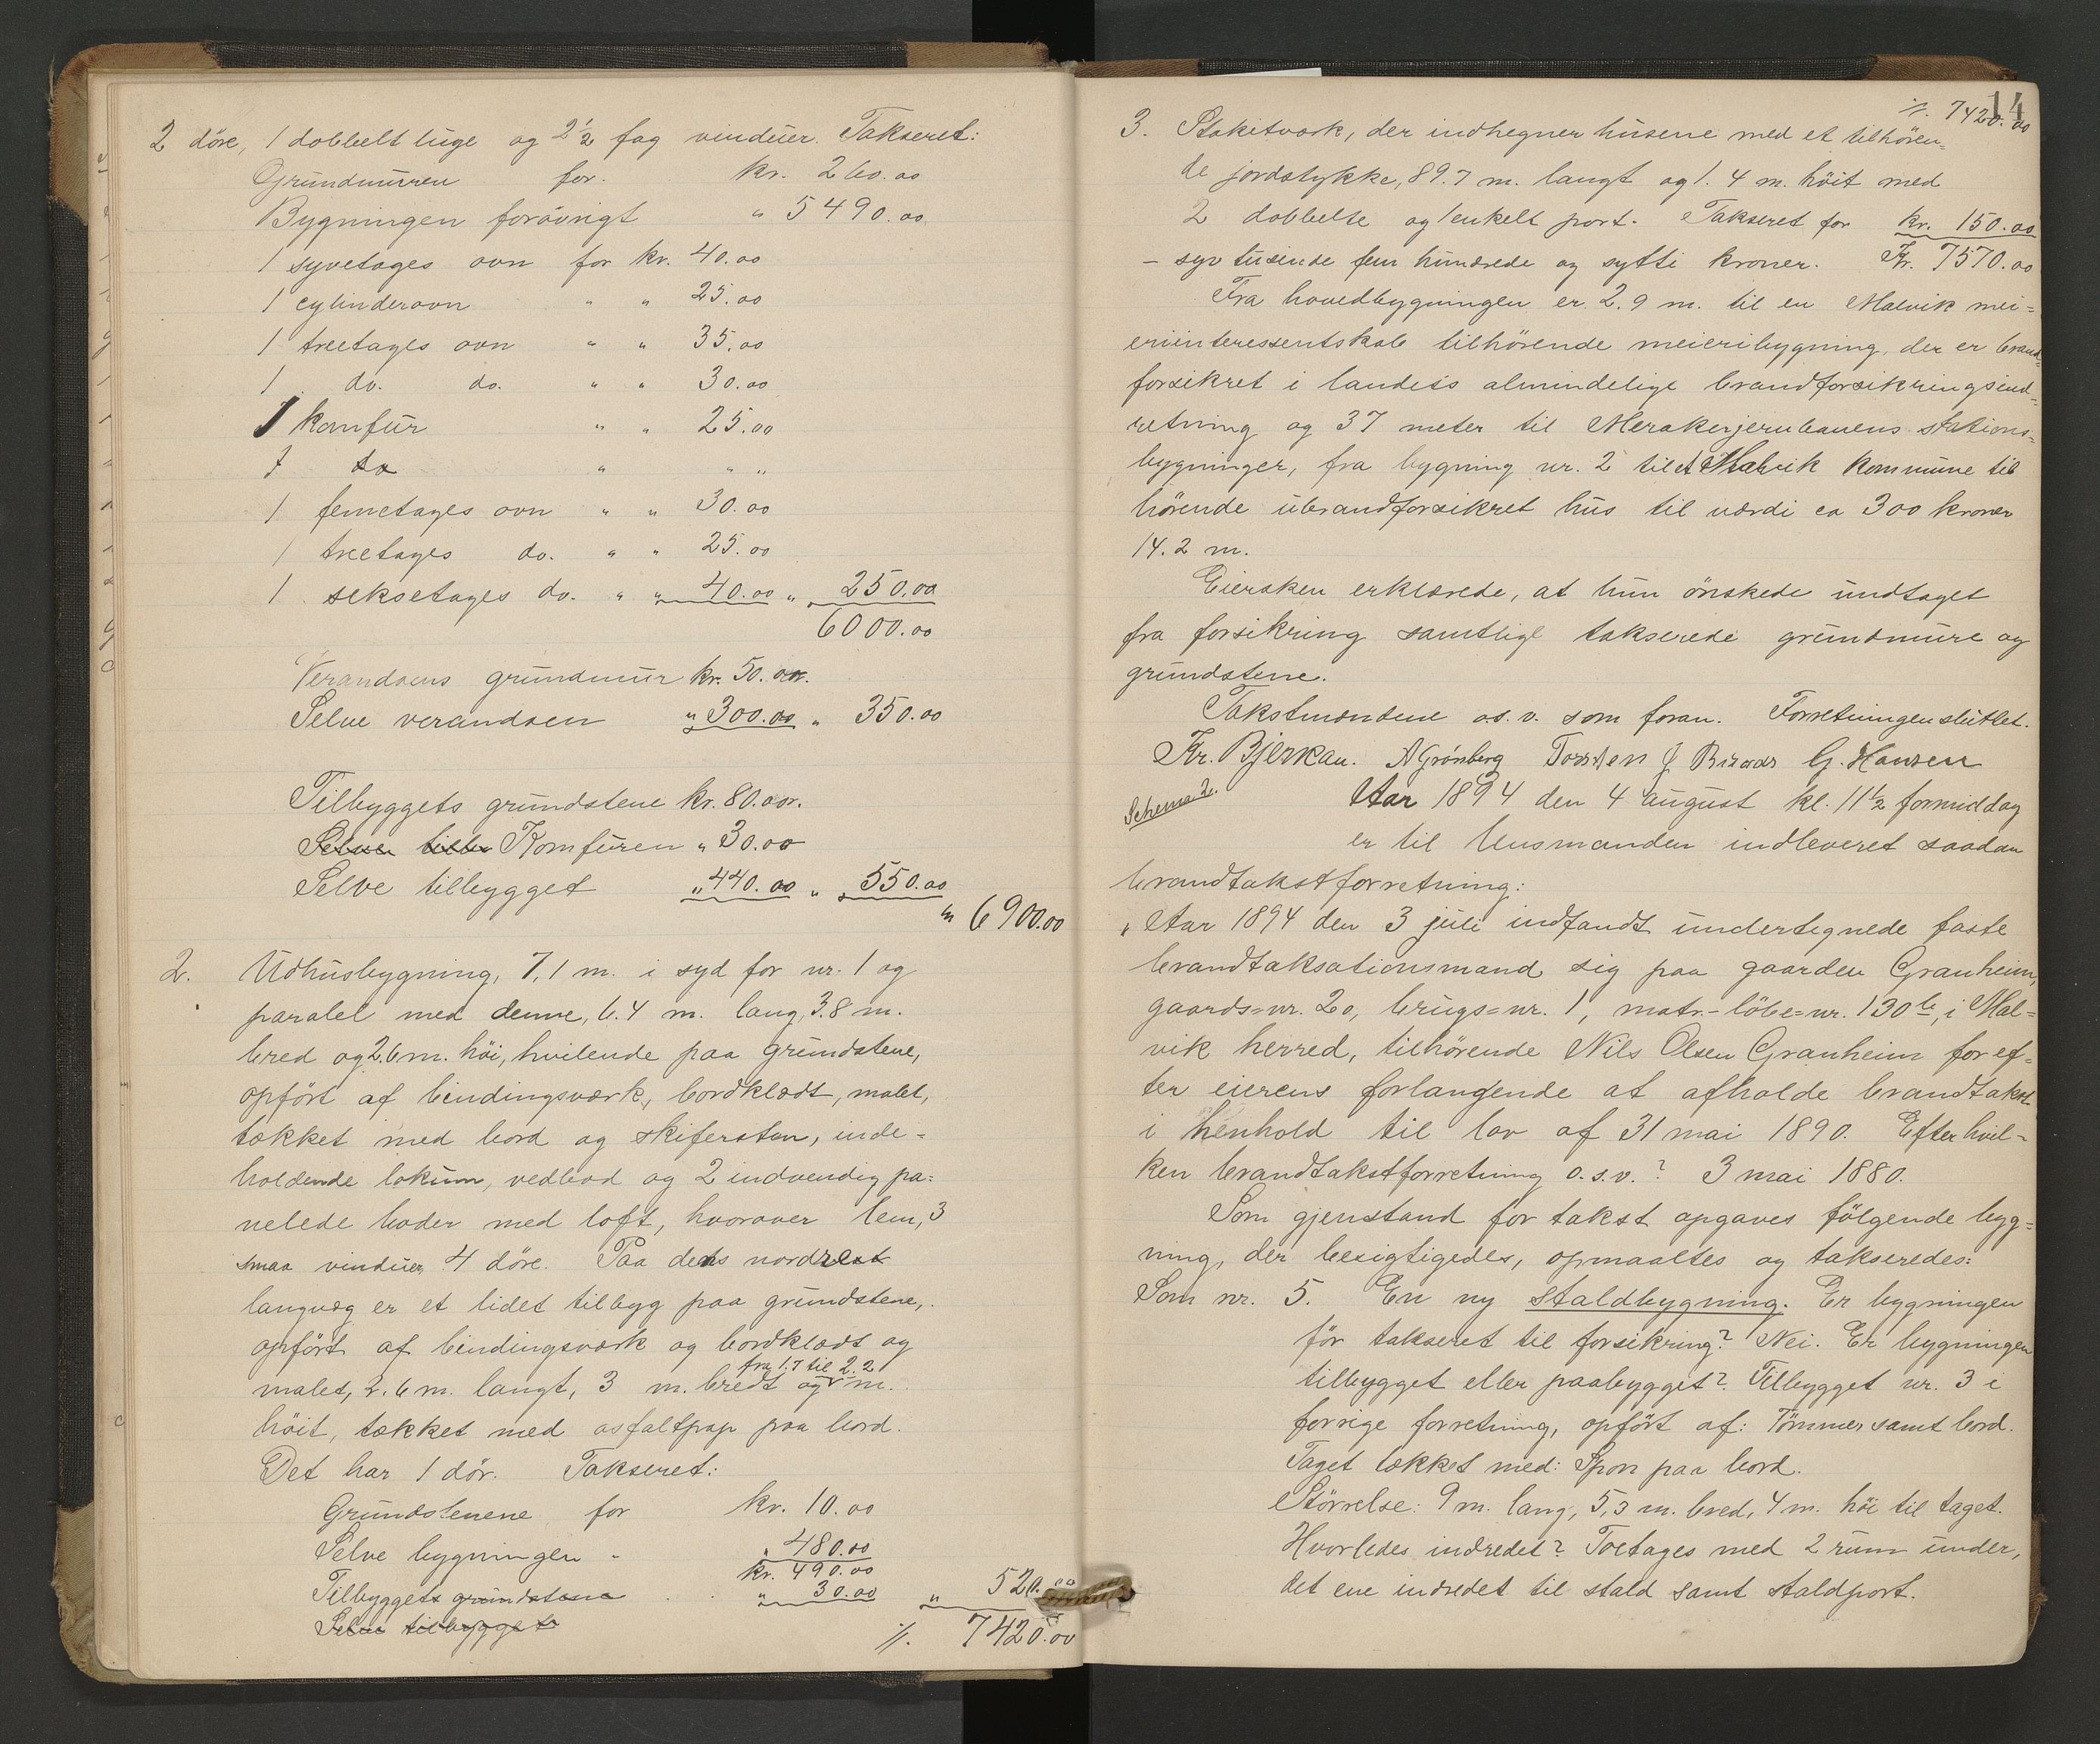 2 döre, 1 dobbelt luge og 2 1/2 fag vinduer. Takseret:
Grundmuren for. kr. 260.00
Bygningen forövrigt " 5490.00
1 syvetages ovn for kr. 40.00
1 cylinderovn " " 25.00
1 treetages ovn " " 35.00
1 do. do. " " 30.00
1 komfur " " 25.00
1 do " " "
1 femetages ovn " " 30.00
1 treetages do. " " 25.00
1 seksetages do. " " 40.00 " 250.00
6000.00
Verandaens grundmur kr. 50.00.
Selve verandaen " 300.00 " 350.00
Tilbyggets grundstene kr. 80.00.
Selve tilb Komfuren " 30.00
Selve tilbygget " 440.00 " 550.00
" 6900.00
2. Udhusbygning, 7,1 m. i syd for nr. 1 og
paralel med denne, 6.4 m. lang, 3.8 m.
bred og 2.6 m. höi, hvilende paa grundstene,
opfört af bindingsværk, bordklædt, malet,
tækket med bord og skifersten, inde=
holdende lokum, vedbod og 2 indvendig pa=
nelede boder med loft, hvorover lem, 3
smaa vinduer 4 döre. Paa dens nordre
langvæg er et lidet tilbyg paa grundstene,
opfört af bindingsværk og bordklædt og
fra 1.7 til 2.2
malet, 2.6 m. langt, 3 m. bredt og m.
höit, tækket med asfaltpap paa bord.
Det har 1 dör. Takseret:
Grundstenene for kr. 10.00
Selve bygningen " " 480.00
kr. 490.00
Tilbyggets grundstene " 30.00 " 520.00
Selve tilbygget
%. 7420.00
14
%. 7420.00
3. Stakitværk, der indhegner husene med et tilhören=
de jordstykke, 89.7 m. langt og 1.4 m. höit med
2 dobbelte og 1 enkelt port. Takseret for kr. 150.00
- syv tusinde fem hundrede og sytti kroner. Kr. 7570.00
Fra hovedbygningen er 2.9 m. til en Malvik mei=
eriinteressentskab tilhörende meieribygning, der er brand=
forsikret i landets almindelige brandforsikringsind=
retning og 37 meter til Merakerjernbanens stations=
bygninger, fra bygning nr. 2 til et Malvik kommune til
hörende ubrandforsikret hus til værdi ca 300 kroner
14.2 m.
Eiersken erklærede, at hun önskede undtaget
fra forsikring samtlige takserede grundmure og
grundstene.
Takstmændene o.s.v. som foran. Forretningen sluttet.
Kr. Bjerkan. A Grönberg Torsten J Biraas G. Hansen
Schema 2.
Aar 1894 den 4 august kl. 11 1/2 formiddag
er til lensmanden indleveret saadan
brandtakstforretning:
" Aar 1894 den 3 juli indfandt undertegnede faste
brandtaksationsmænd sig paa gaarden Granheim,
gaards=nr. 20, brugs=nr. 1, matr.-löbe=nr. 130 b, i Mal=
vik herred, tilhörende Nils Olsen Granheim for ef=
ter eierens forlangende at afholde brandtakst
i henhold til lov af 31 mai 1890. Efter hvil=
ken brandtakstforretning o.s.v.? 3 mai 1880.
Som gjenstand for takst opgaves fölgende byg=
ning, der besigtigedes, opmaaltes og takseredes:
Som nr. 5. En ny staldbygning. Er bygningen
för takseret til forsikring? Nei. Er bygningen
tilbygget eller paabygget? Tilbygget nr. 3 i
forrige forretning, opfört af: Tömmer samt bord.
Taget tækket med: Spon paa bord.
Störrelse: 9 m. lang, 5,3 m. bred, 4 m. höi til taget.
Hvorledes indredet? Toetages med 2 rum under,
det ene indredet til stald samt staldport.